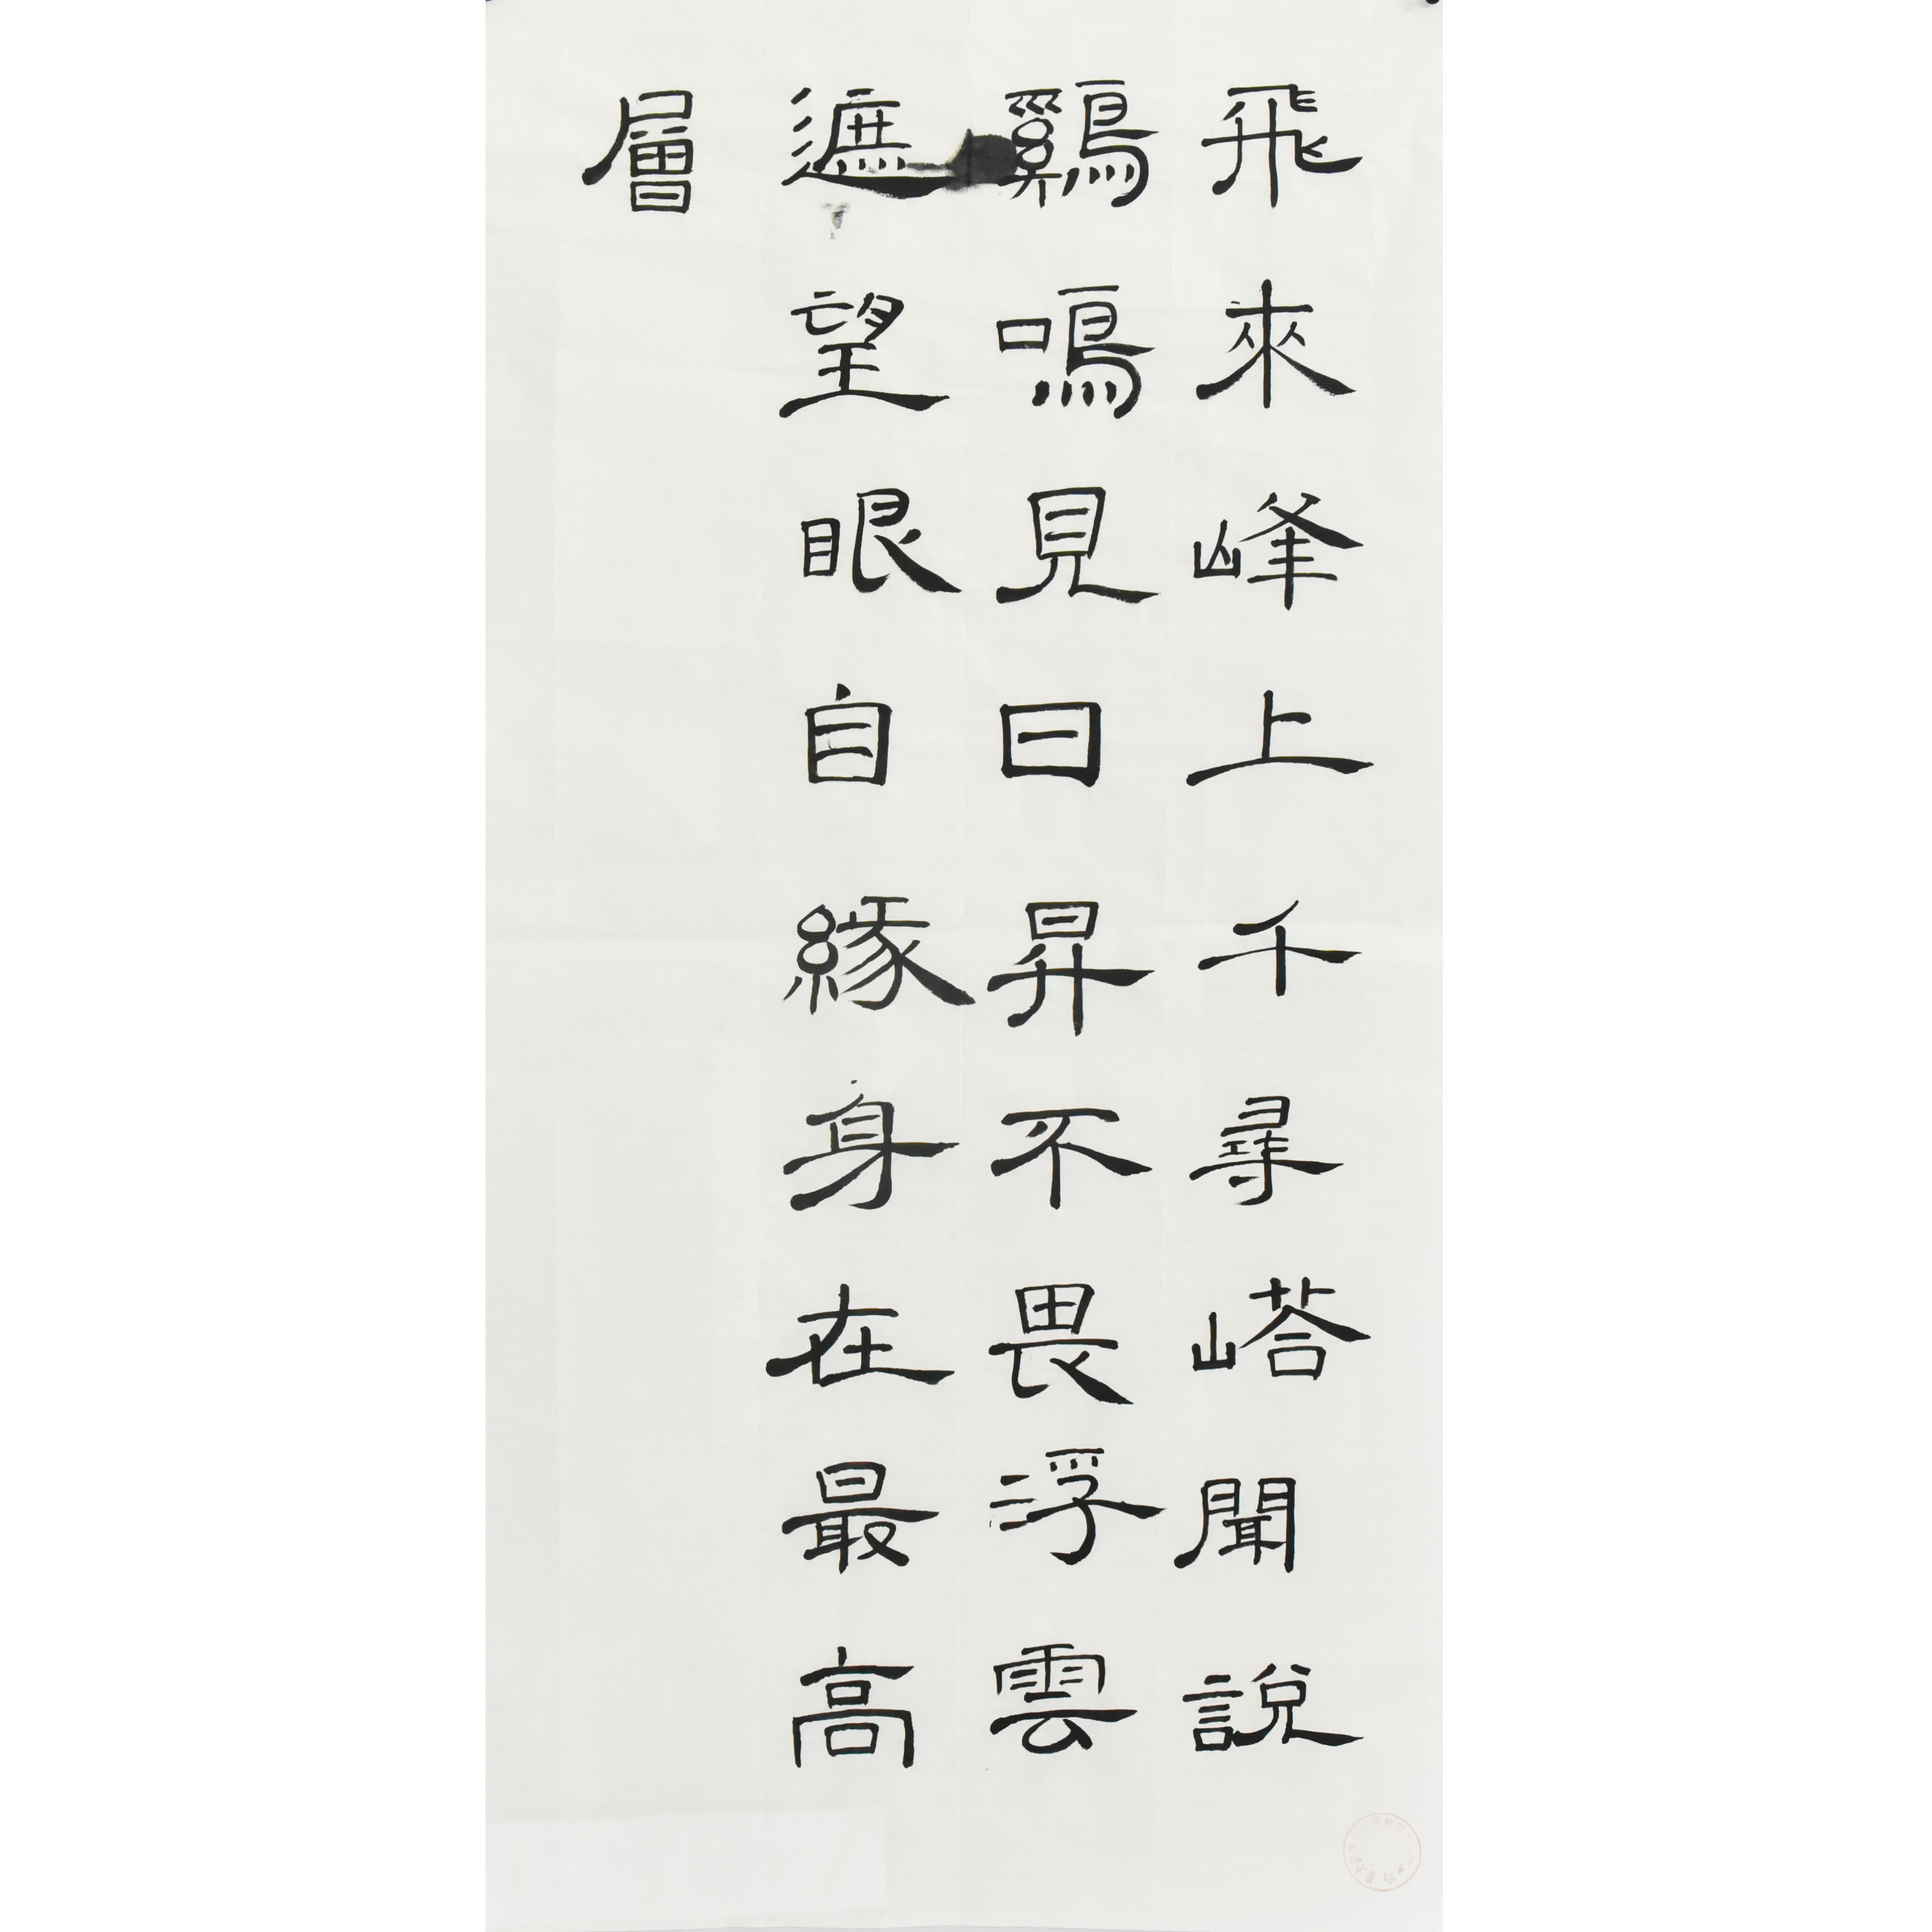 飛來峰上千尋嵣聞說
鷄鳴見日昇不畏浮雲
遮望眼自緣身在最高
層